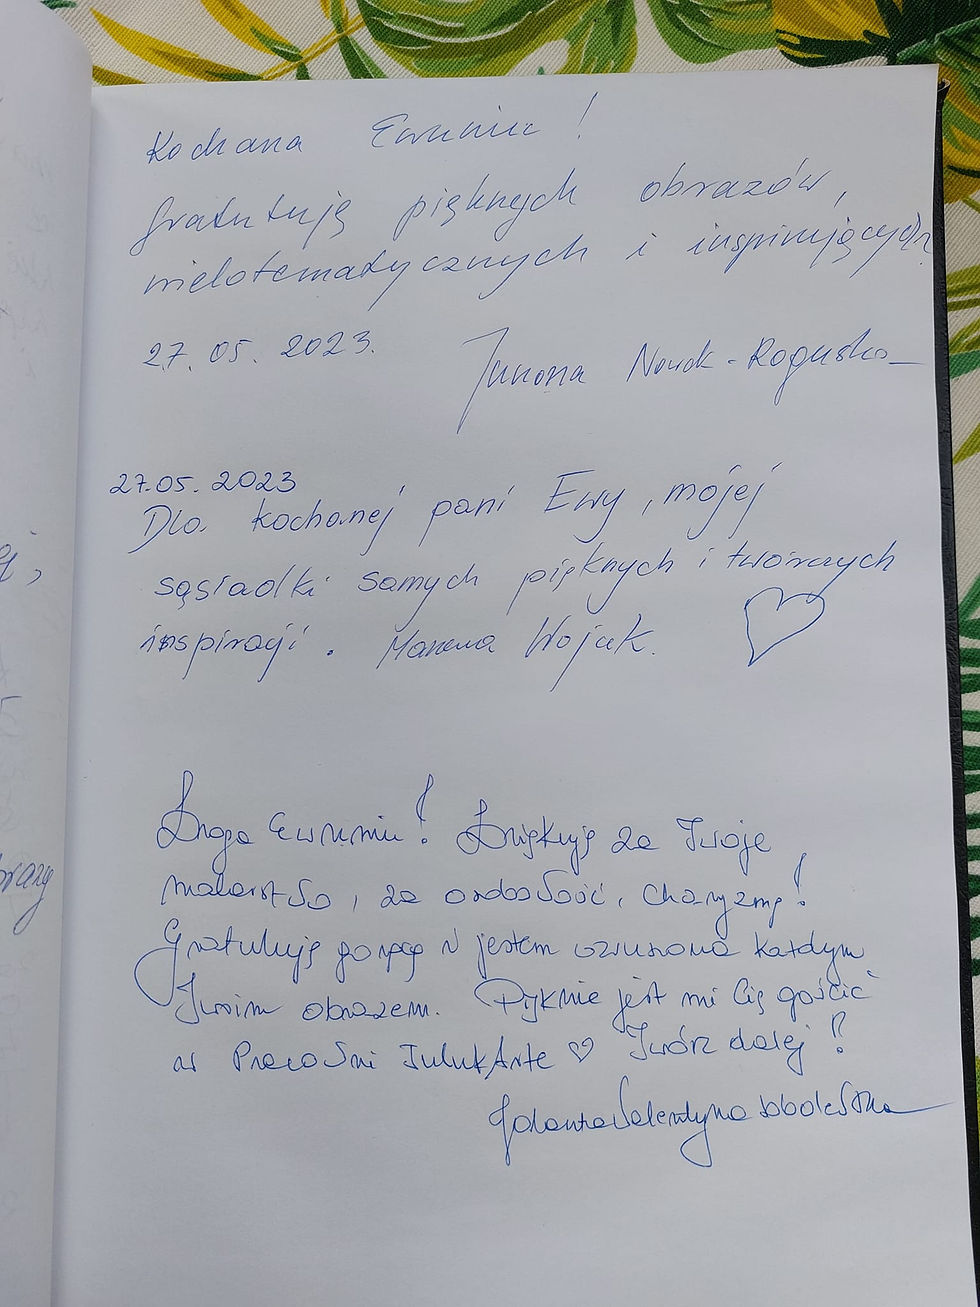 Kochana Ewuniu!
Gratuluję pięknych obrazów,
wielotematycznych i inspirujących.
27.05.2023.
Junona Nowak-Roguska
27.05.2023
Dla kochanej pani Ewy, mojej
sąsiadki samych pięknych i twórczych
inspiracji. Wojcik.
Droga Ewuniu! Dziękuję za Twoje
malarstwo, za osobowość, charyzmę!
Gratuluję gorąco i jestem wzruszona każdym
Twoim obrazem. Pięknie jest mi Cię gościć
w Pracowni JulukArte ♡ Twórz dalej!
Jolanta Walentyna Sobolewska